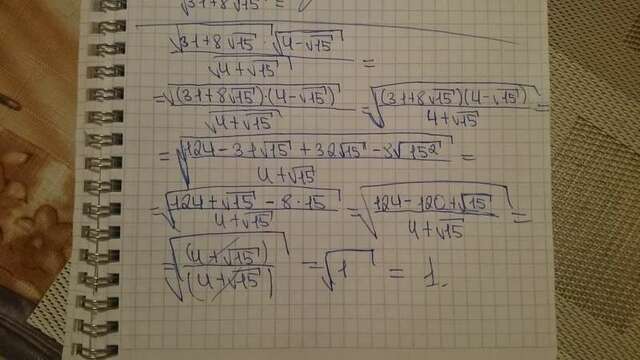 √31+8√15 =
√31+8√15 √4-√15 / √4+√15 =
= √(31+8√15)(4-√15) / √4+√15 = √(31+8√15)(4-√15) / 4+√15 =
= √124-31√15+32√15-8√15² / 4+√15 =
= √124+√15-8·15 / 4+√15 = √124-120+√15 / 4+√15 =
= √(4+√15) / (4+√15) = √1 = 1.